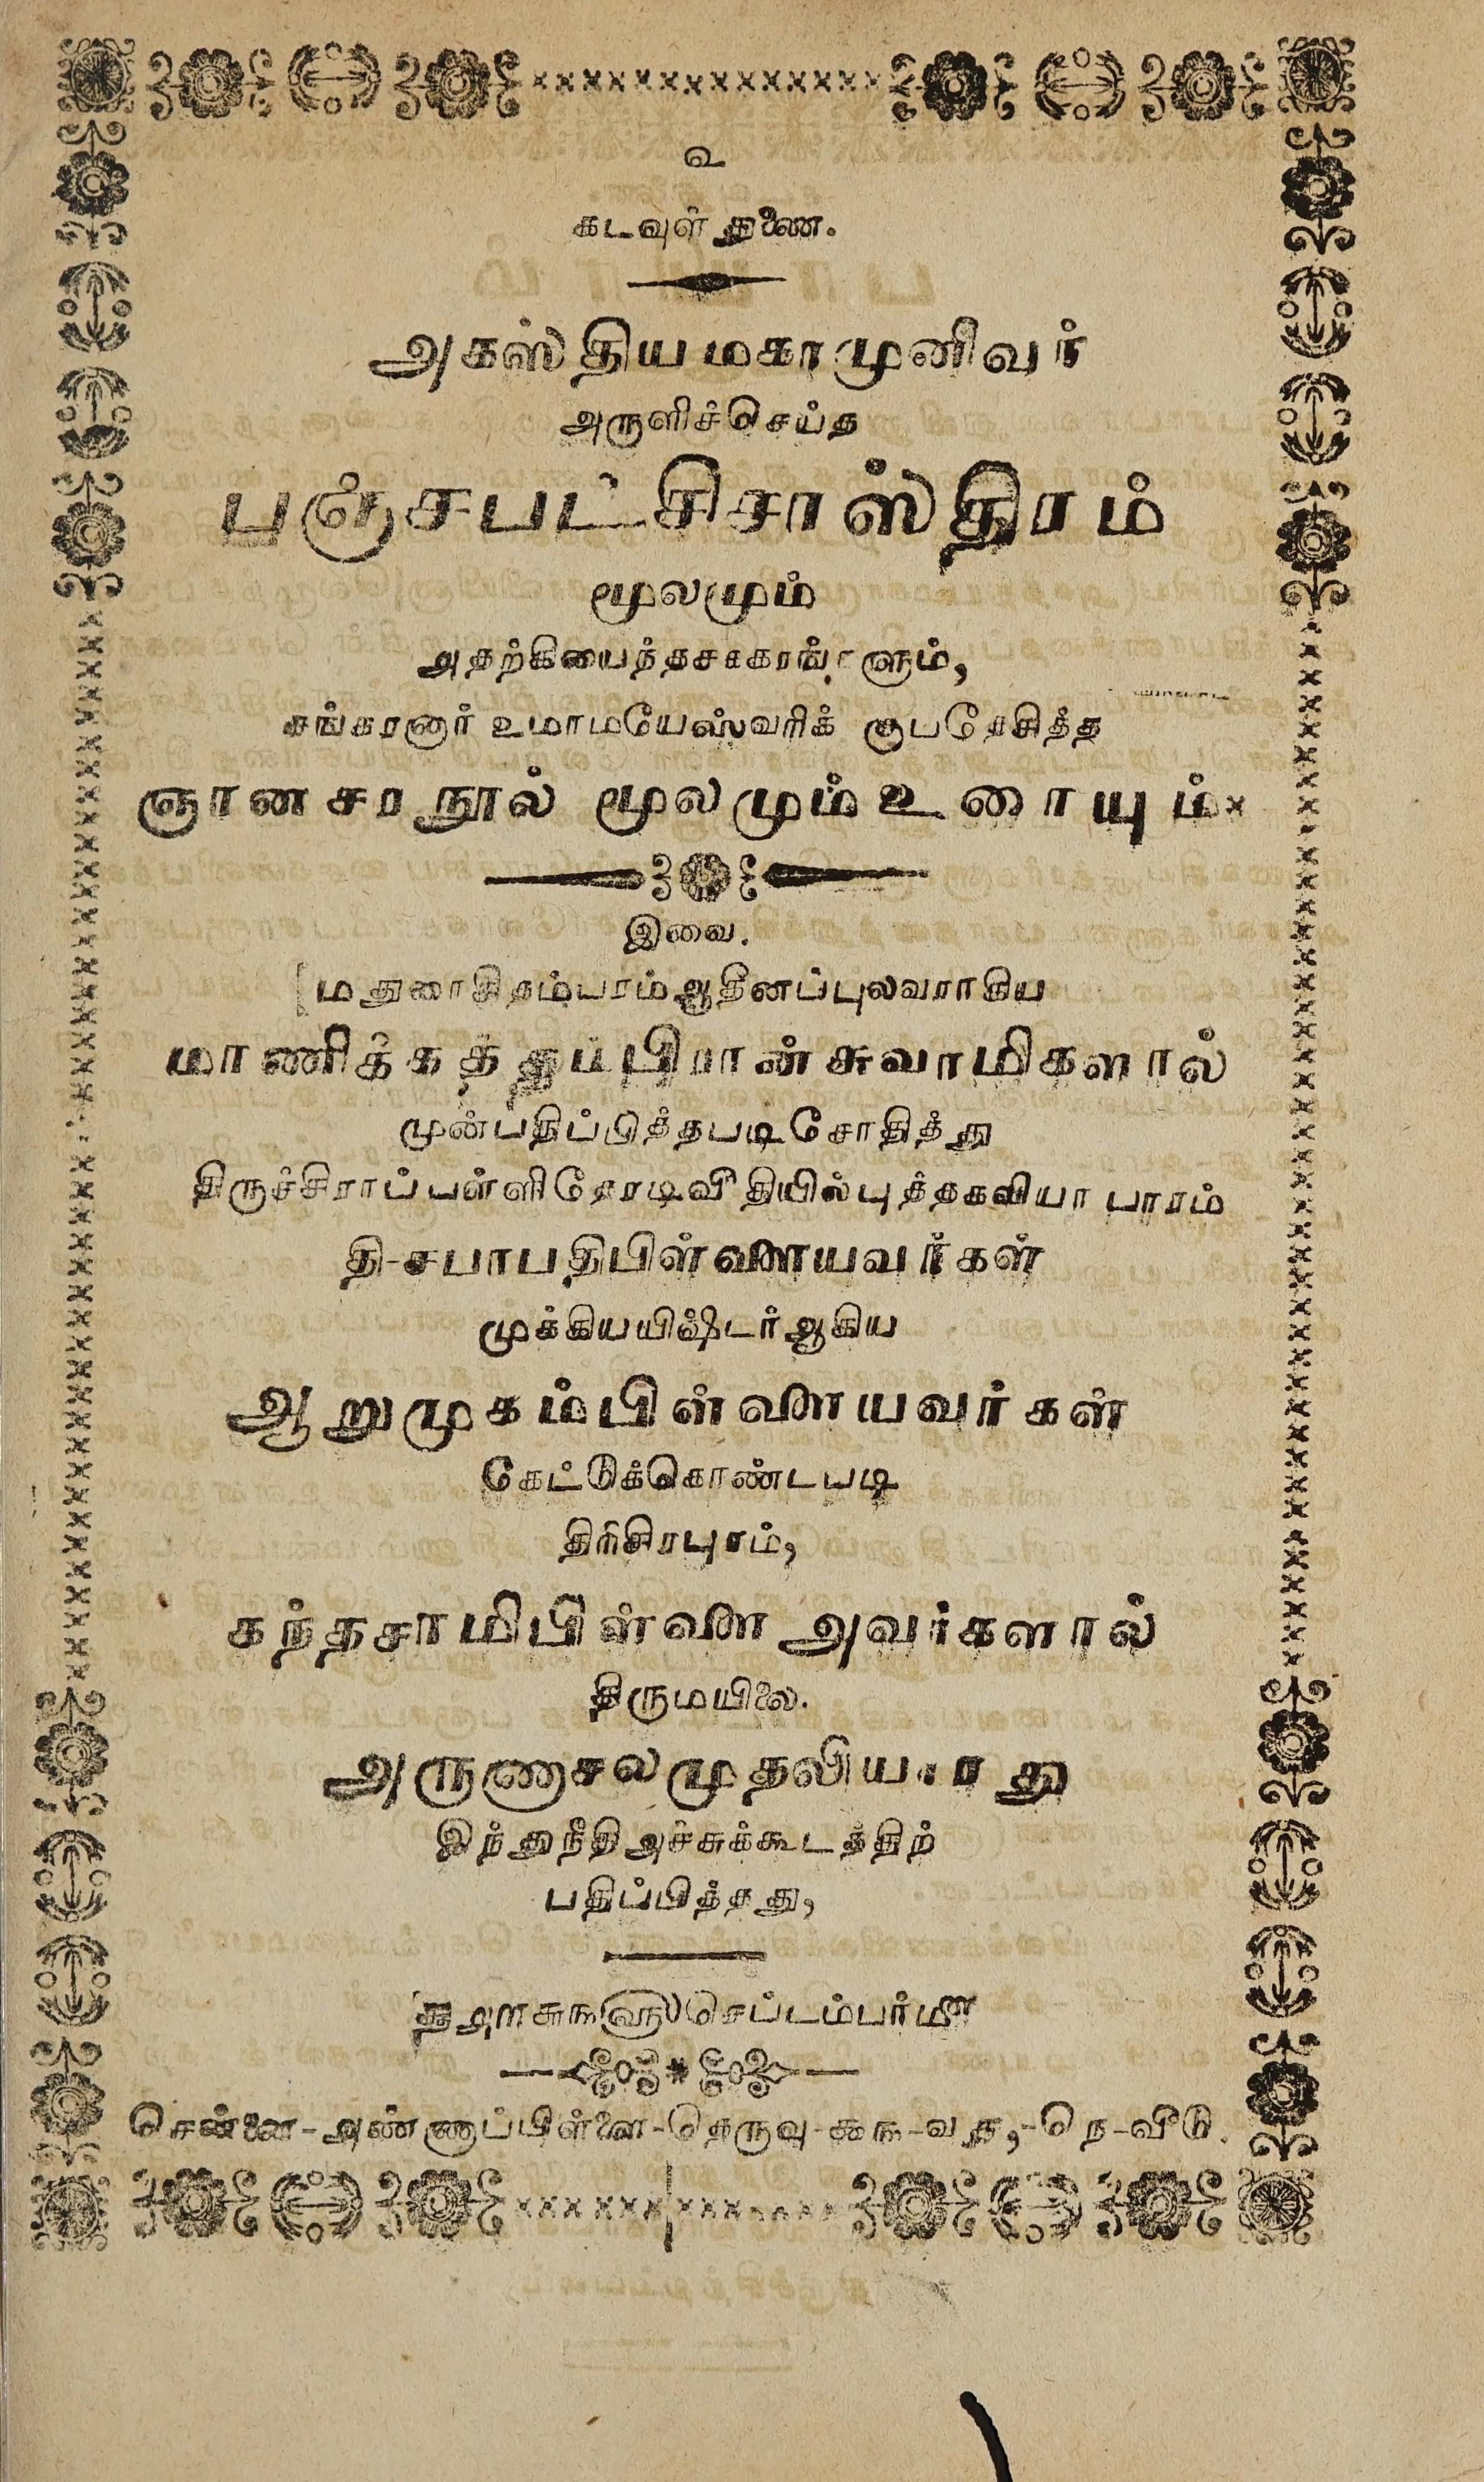 உ
கடவுள் துணை.
அகஸ்தியமகாமுனிவர்
அருளிச்செய்த
பஞ்சபட்சிசாஸ்திரம்
மூலமும்
அதற்கியைந்தசரகரங்களும்,
சங்கரனார் உமாமயேஸ்வரிக் குபதேசித்த
ஞானசரநூல் மூலமும் உரையும்
இவை.
மதுரைசிதம்பரம்ஆதீனப்புலவராகிய
மாணிக்கத்தம்பிரான்சுவாமிகளால்
முன்பதிப்பித்தபடிசோதித்து
திருச்சிராப்பள்ளிதேரடிவீதியில்புத்தகவியாபாரம்
தி-சபாபதிபிள்ளையவர்கள்
முக்கியயிஷ்டர்ஆகிய
ஆறுமுகம்பிள்ளையவர்கள்
கேட்டுக்கொண்டபடி
திரிசிரபுரம்,
கந்தசாமிபிள்ளை அவர்களால்
திருமயிலை.
அருணாசலமுதலியாரது
இந்துநீதிஅச்சுக்கூடத்திற்
பதிப்பித்தது,
செப்டம்பர்மீ
சென்னை-அண்ணாப்பிள்ளை-தெருவு-௬௩-வது,-நெ-வீடு.